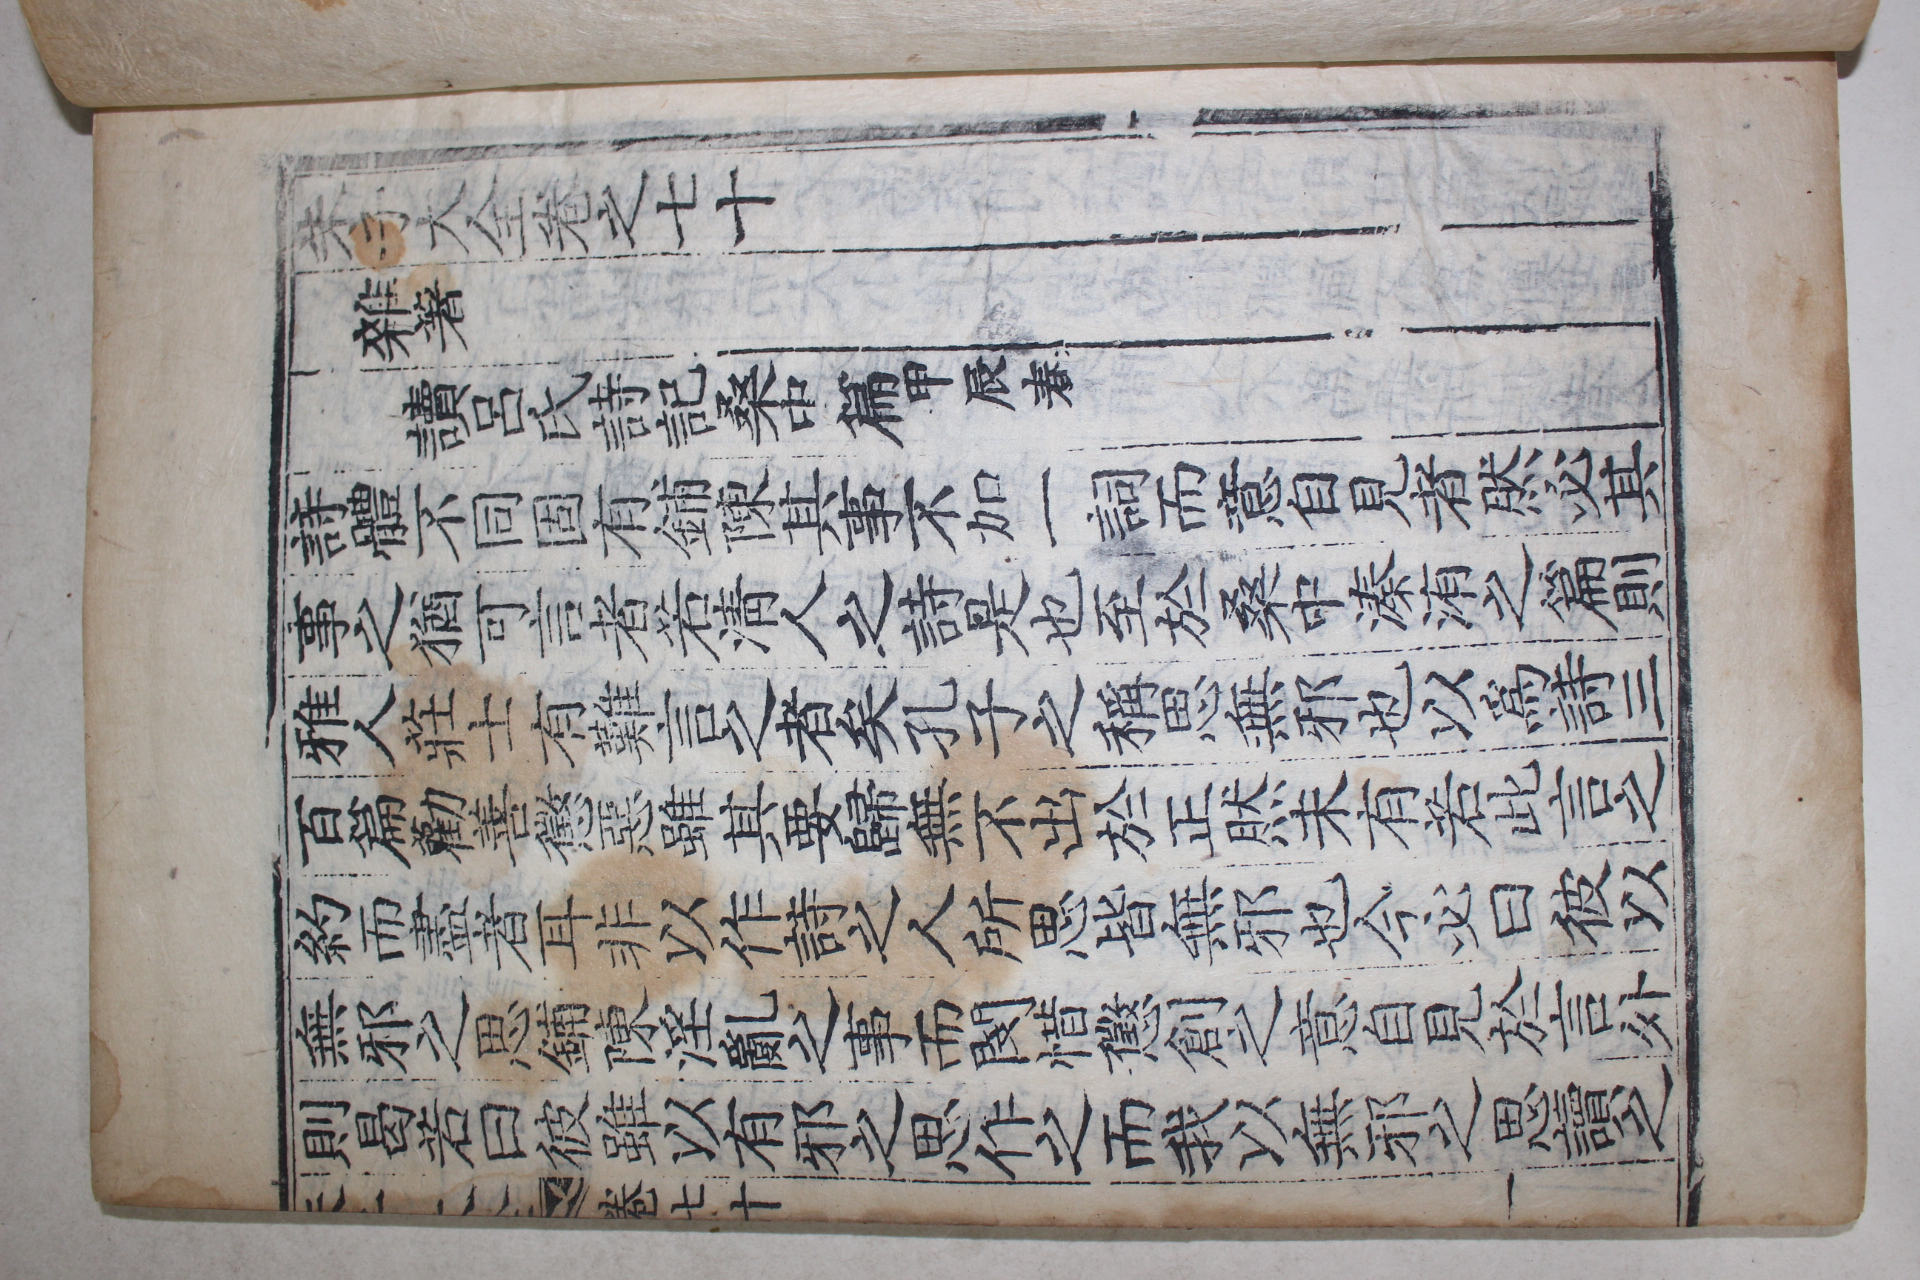 朱子大全卷之七十
雜著
讀呂氏詩記桑中篇甲辰春
詩體不同固有鋪陳其事不加一詞而意自見者然必其
事之猶可言者若淸人之詩是也至於桑中溱洧之篇則
雅人莊士有難言之者矣孔子之稱思無邪也以爲詩三
百篇勸善懲惡雖其要歸無不出於正然未有若此言之
約而盡者耳非以作詩之人所思皆無邪也今必曰彼以
無邪之思鋪陳淫亂之事而閔惜懲創之意自見於言外
則曷若曰彼雖以有邪之思作之而我以無邪之思讀之
卷七十 一